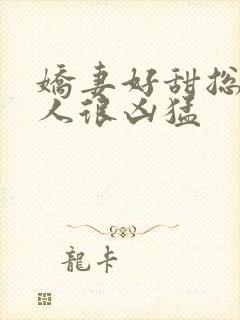 嬌妻好甜總
人很凶猛
龍卡